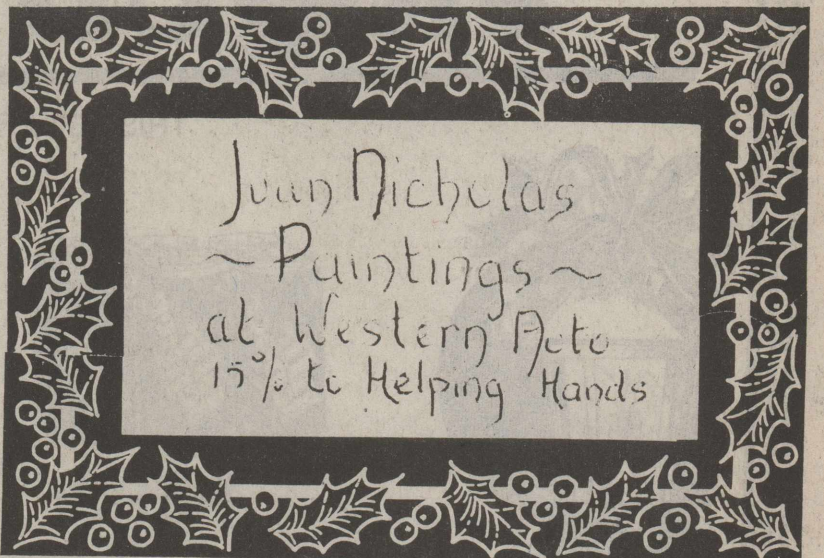 Juan Nicholas
~ Paintings ~
at Western Auto
15% to Helping Hands